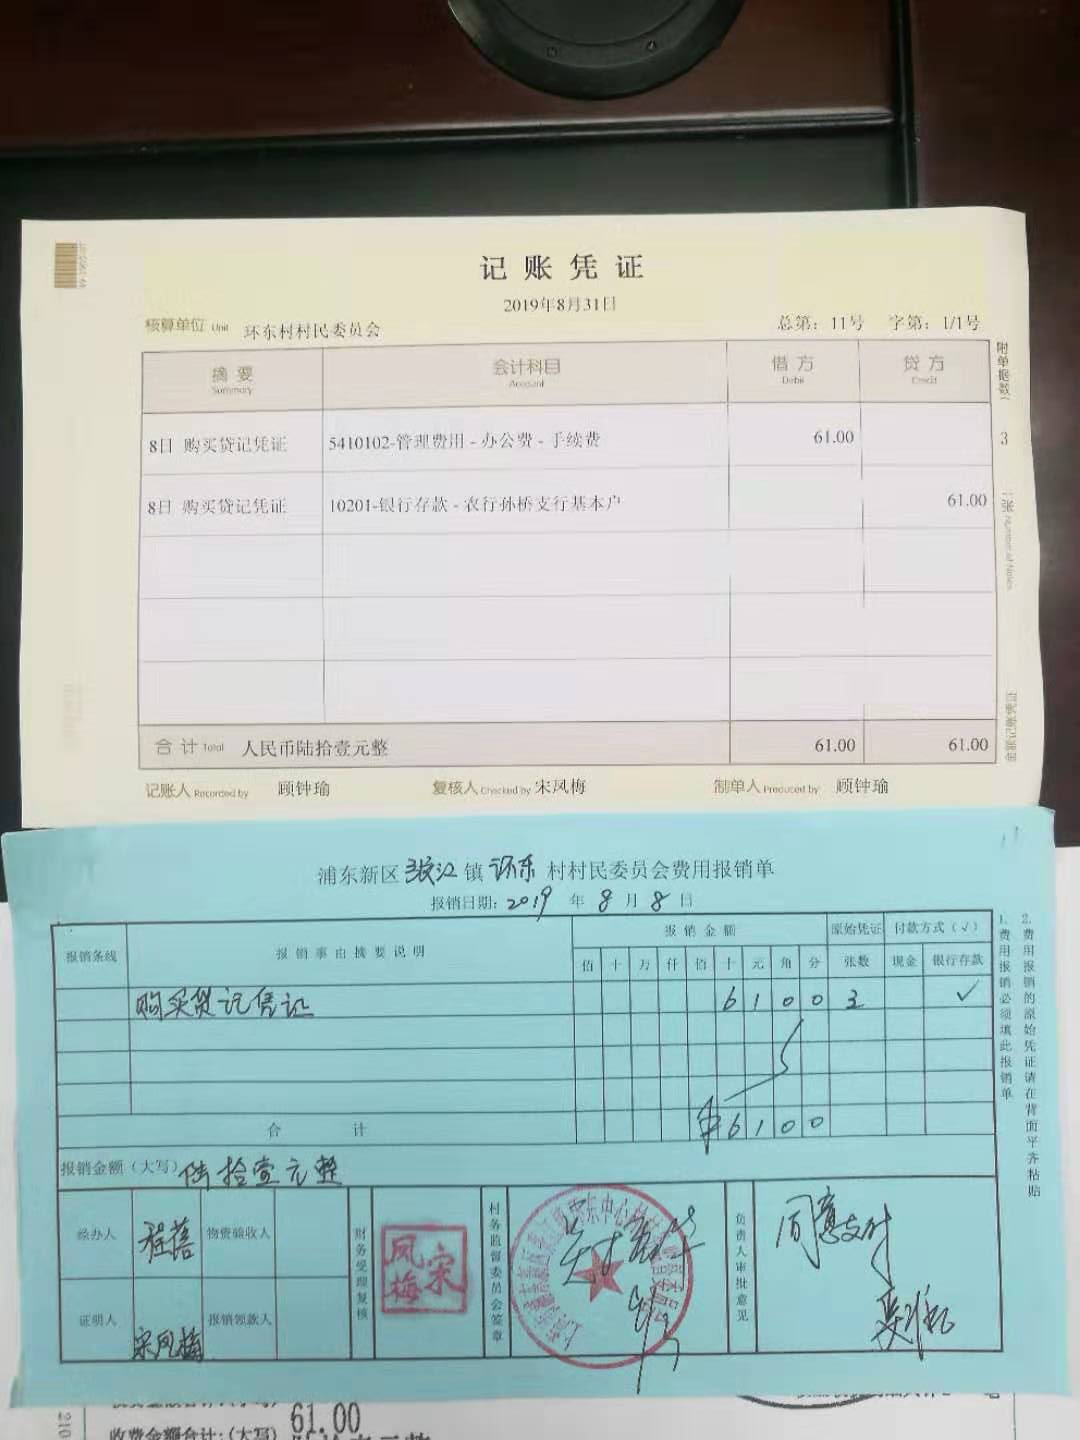 记账凭证
2019年8月31日
核算单位 Unit 环东村村民委员会 总第：11号 字第：1/1号
摘要 会计科目 借方 贷方
Summary Account Debit Credit
8日 购买贷记凭证 5410102-管理费用 - 办公费 - 手续费 61.00
8日 购买贷记凭证 10201-银行存款 - 农行孙桥支行基本户 61.00
合计 Total 人民币陆拾壹元整 61.00 61.00
记账人 Recorded by 顾钟瑜 复核人 Checked by 宋凤梅 制单人 Produced by 顾钟瑜
附单据数 3 张
金额记账凭证
浦东新区张江镇环东村村民委员会费用报销单
报销日期：2019年8月8日
报销条线 报销事由摘要说明 报销金额 原始凭证张数 付款方式（√）
佰 十 万 仟 佰 十 元 角 分 现金 银行存款
购买贷记凭证 6 1 0 0 3 √
合计 ¥6 1 0 0
报销金额（大写）陆拾壹元整
经办人 程蓓 物资验收人 财务受理复核 凤梅宋 村务监督委员会签章 负责人审批意见 同意支付
证明人 宋凤梅 报销领款人
1.费用报销必须填此报销单
2.费用报销的原始凭证请在背面平齐粘贴
61.00
收费金额合计：(大写)
210